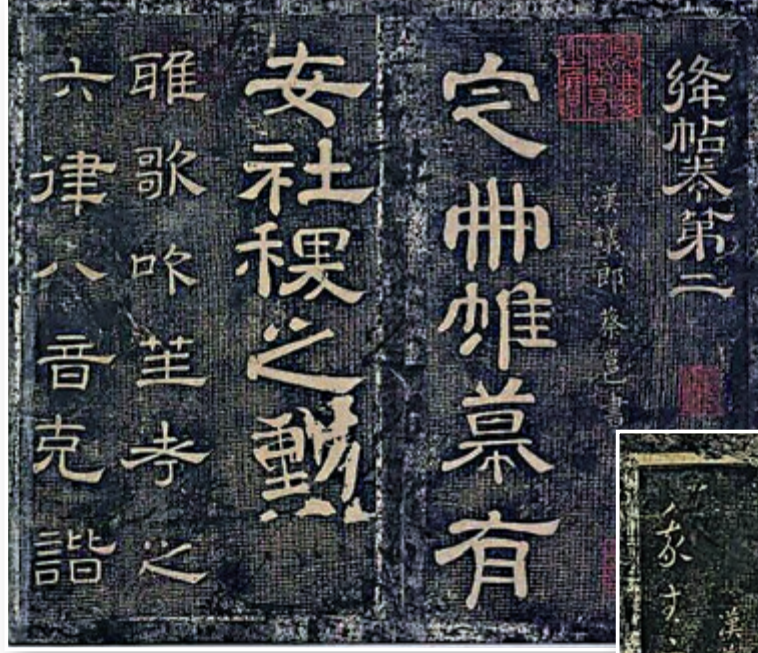 絳帖卷第二
漢議郎蔡邕書
定冊帷幕有
安社稷之勲
雎歌吹笙考之
六律八音克諧
漢